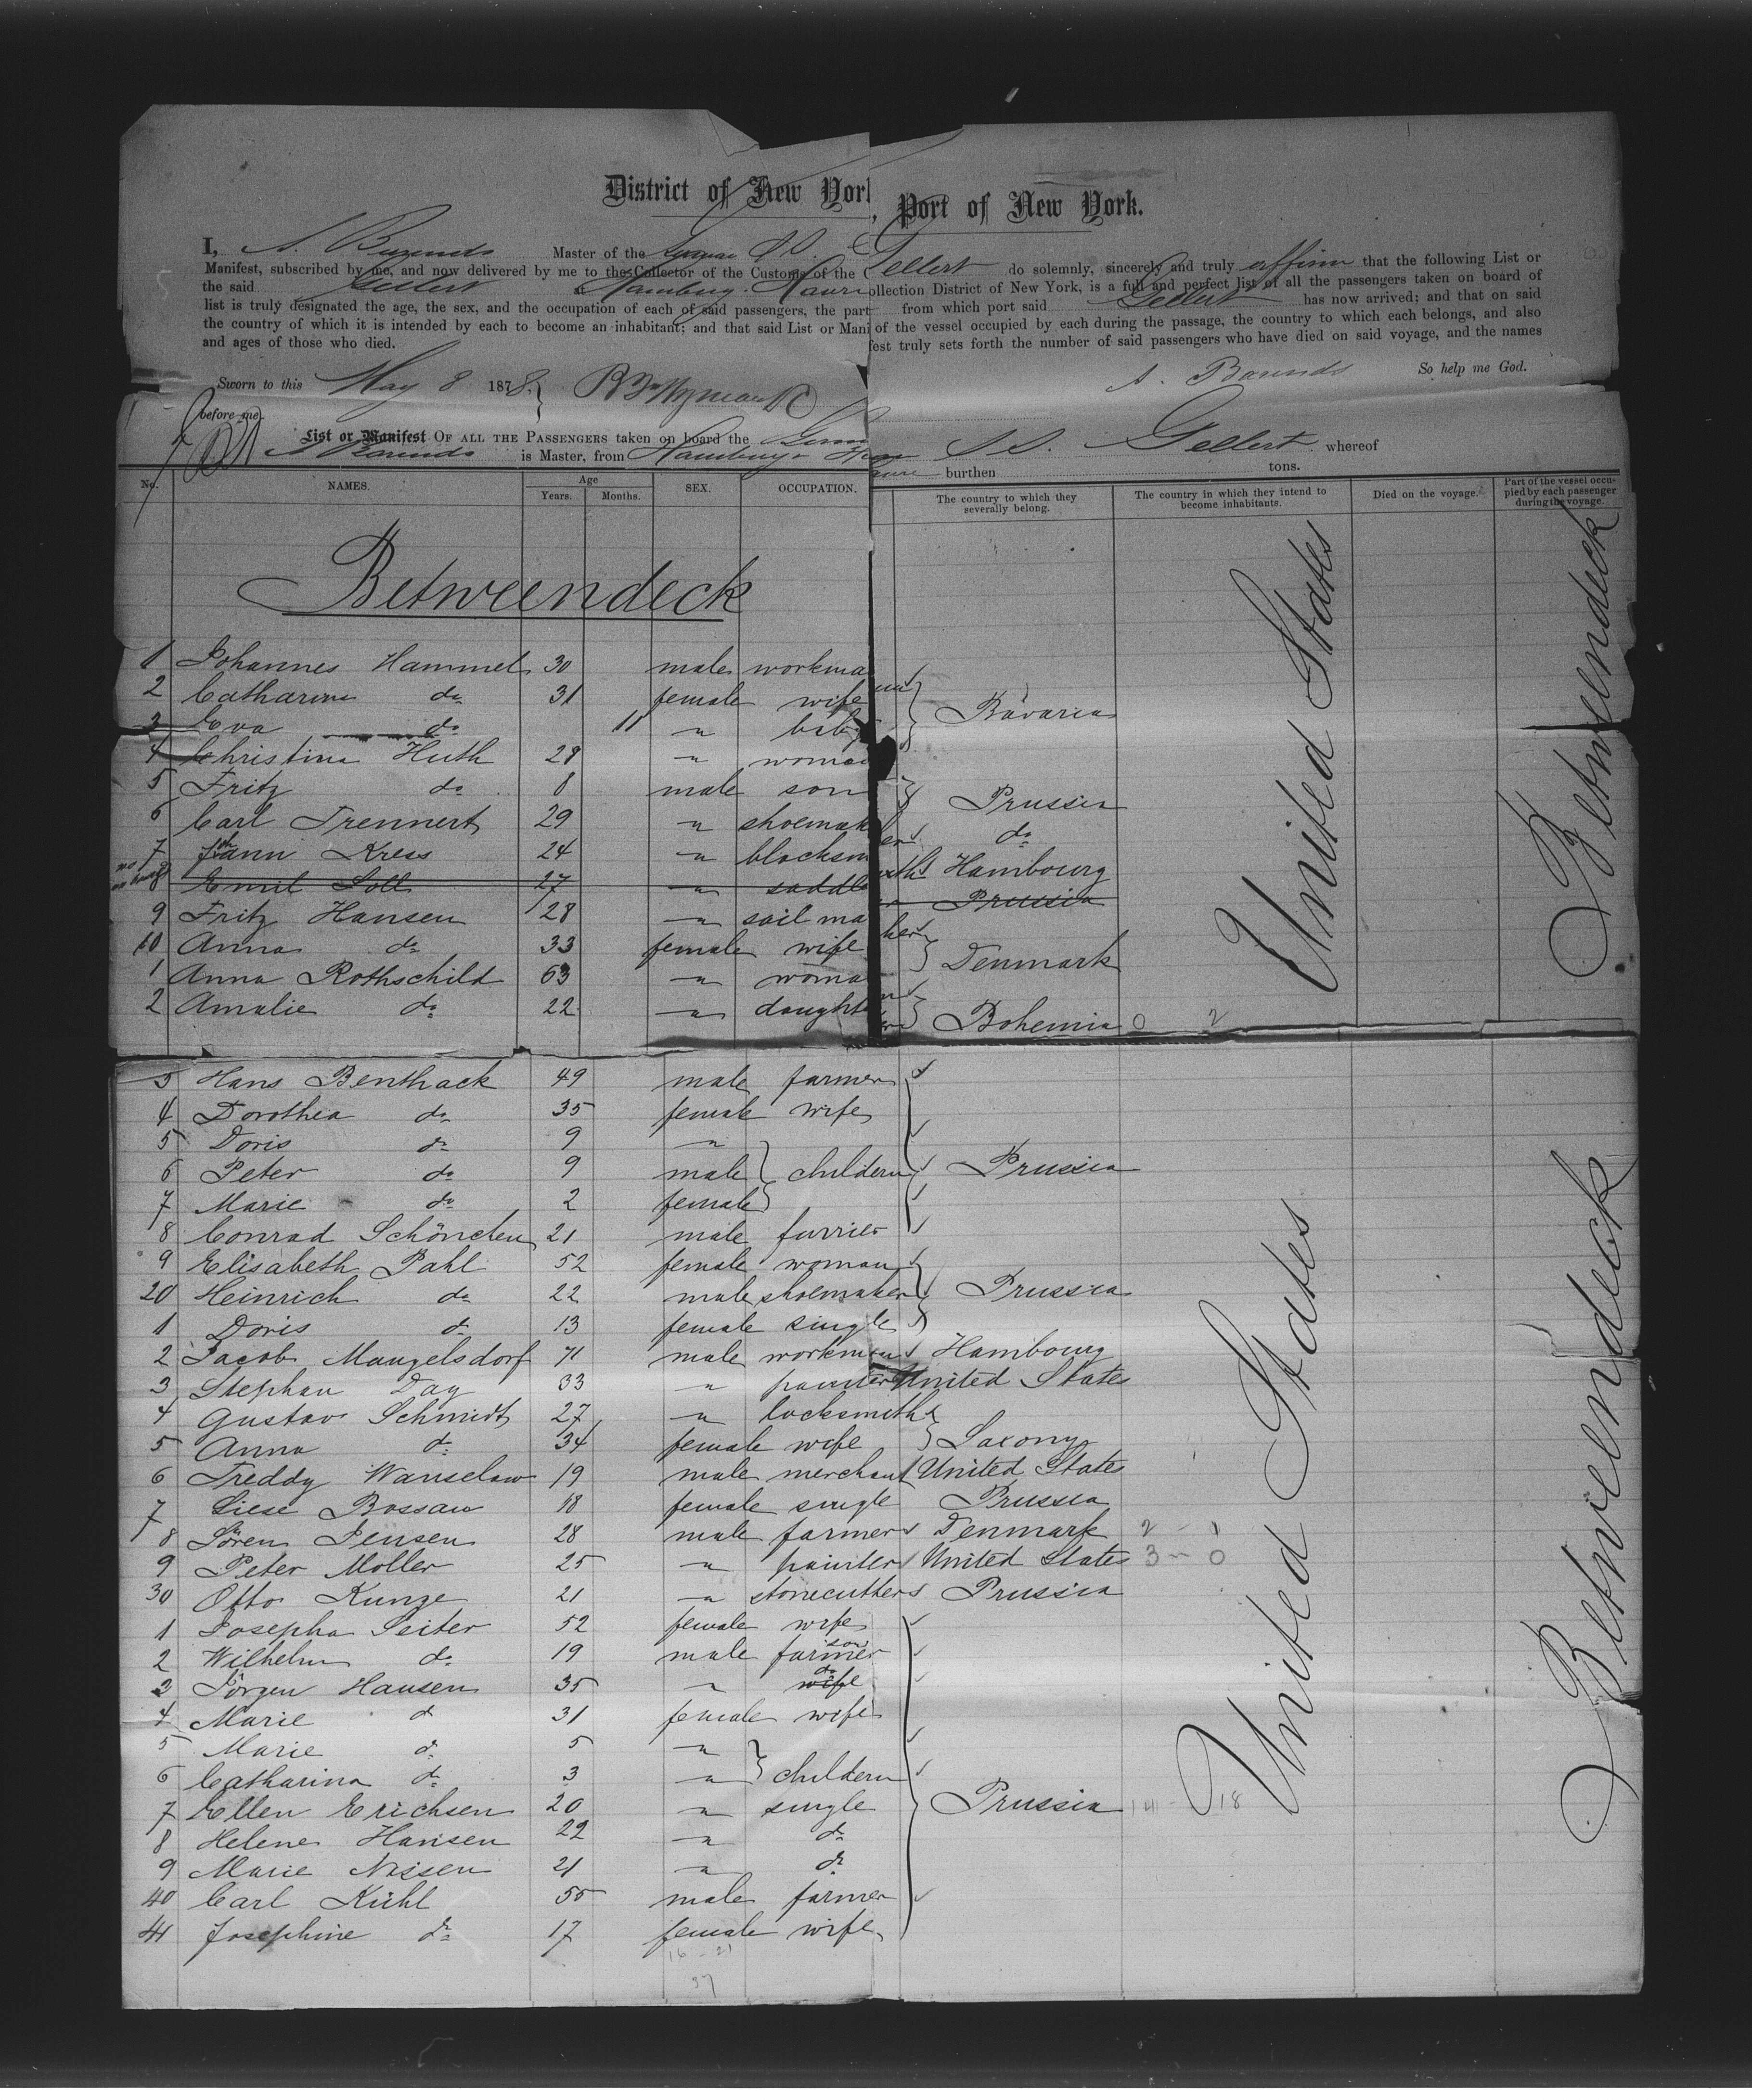 District of New York, Port of New York.
I, A. Barends Master of the German S.S. Gellert do solemnly, sincerely and truly affirm that the following List or
Manifest, subscribed by me, and now delivered by me to the Collector of the Customs of the Collection District of New York, is a full and perfect list of all the passengers taken on board of
the said Gellert Hamburg. Havre from which port said Gellert has now arrived; and that on said
list is truly designated the age, the sex, and the occupation of each of said passengers, the part of the vessel occupied by each during the passage, the country to which each belongs, and also
the country of which it is intended by each to become an inhabitant; and that said List or Manifest truly sets forth the number of said passengers who have died on said voyage, and the names
and ages of those who died.
Sworn to this May 8 1878. A. Barends So help me God.
before me
List or Manifest OF ALL THE PASSENGERS taken on board the Germ S.S. Gellert whereof
A Barends is Master, from Hamburg Havre burthen tons.
No. NAMES. Age Years. Months. SEX. OCCUPATION. The country to which they severally belong. The country in which they intend to become inhabitants. Died on the voyage. Part of the vessel occupied by each passenger during the voyage.
Betweendeck
1 Johannes Hammel 30 male workman
2 Catharina do 31 female wife Bavaria
3 Eva do 11 " baby
4 Christina Huth 28 " woman
5 Fritz do 8 male son Prussia
6 Carl Trennert 29 " shoemaker do
7 Johann Kress 24 " blacksmith Hambourg
8 Emil Soll 27 " saddler Prussia
9 Fritz Hansen 28 " sail maker
10 Anna do 33 female wife Denmark
1 Anna Rothschild 63 " woman
2 Amalie do 22 " daughter Bohemia 0 2
United States
Betweendeck
3 Hans Benthack 49 male farmer
4 Dorothea do 35 female wife
5 Doris do 9 "
6 Peter do 9 male childern Prussia
7 Marie do 2 female
8 Conrad Schönchen 21 male furrier
9 Elisabeth Pahl 52 female woman
20 Heinrich do 22 male shoemaker Prussia
1 Doris do 13 female single
2 Jacob Mangelsdorf 71 male workman Hambourg
3 Stephan Day 33 " painter United States
4 Gustav Schmidt 27 " locksmith
5 Anna do 34 female wife Saxony
6 Freddy Wanselow 19 male merchant United States
7 Liese Bossau 18 female single Prussia
8 Sören Jensen 28 male farmer Denmark 2 - 1
9 Peter Moller 25 " painter United States 3 - 0
30 Otto Kunze 21 " stonecutter Prussia
1 Josepha Seiter 52 female wife
2 Wilhelm do 19 male farmer son
3 Jörgen Hansen 35 " wife do
4 Marie do 31 female wife
5 Marie do 5 "
6 Catharina do 3 " childern
7 Ellen Erichsen 20 " single Prussia 18
8 Helene Hansen 22 " do
9 Marie Nissen 21 " do
40 Carl Kühl 55 male farmer
41 Josephine do 17 female wife
16 - 21
37
United States
Betweendeck